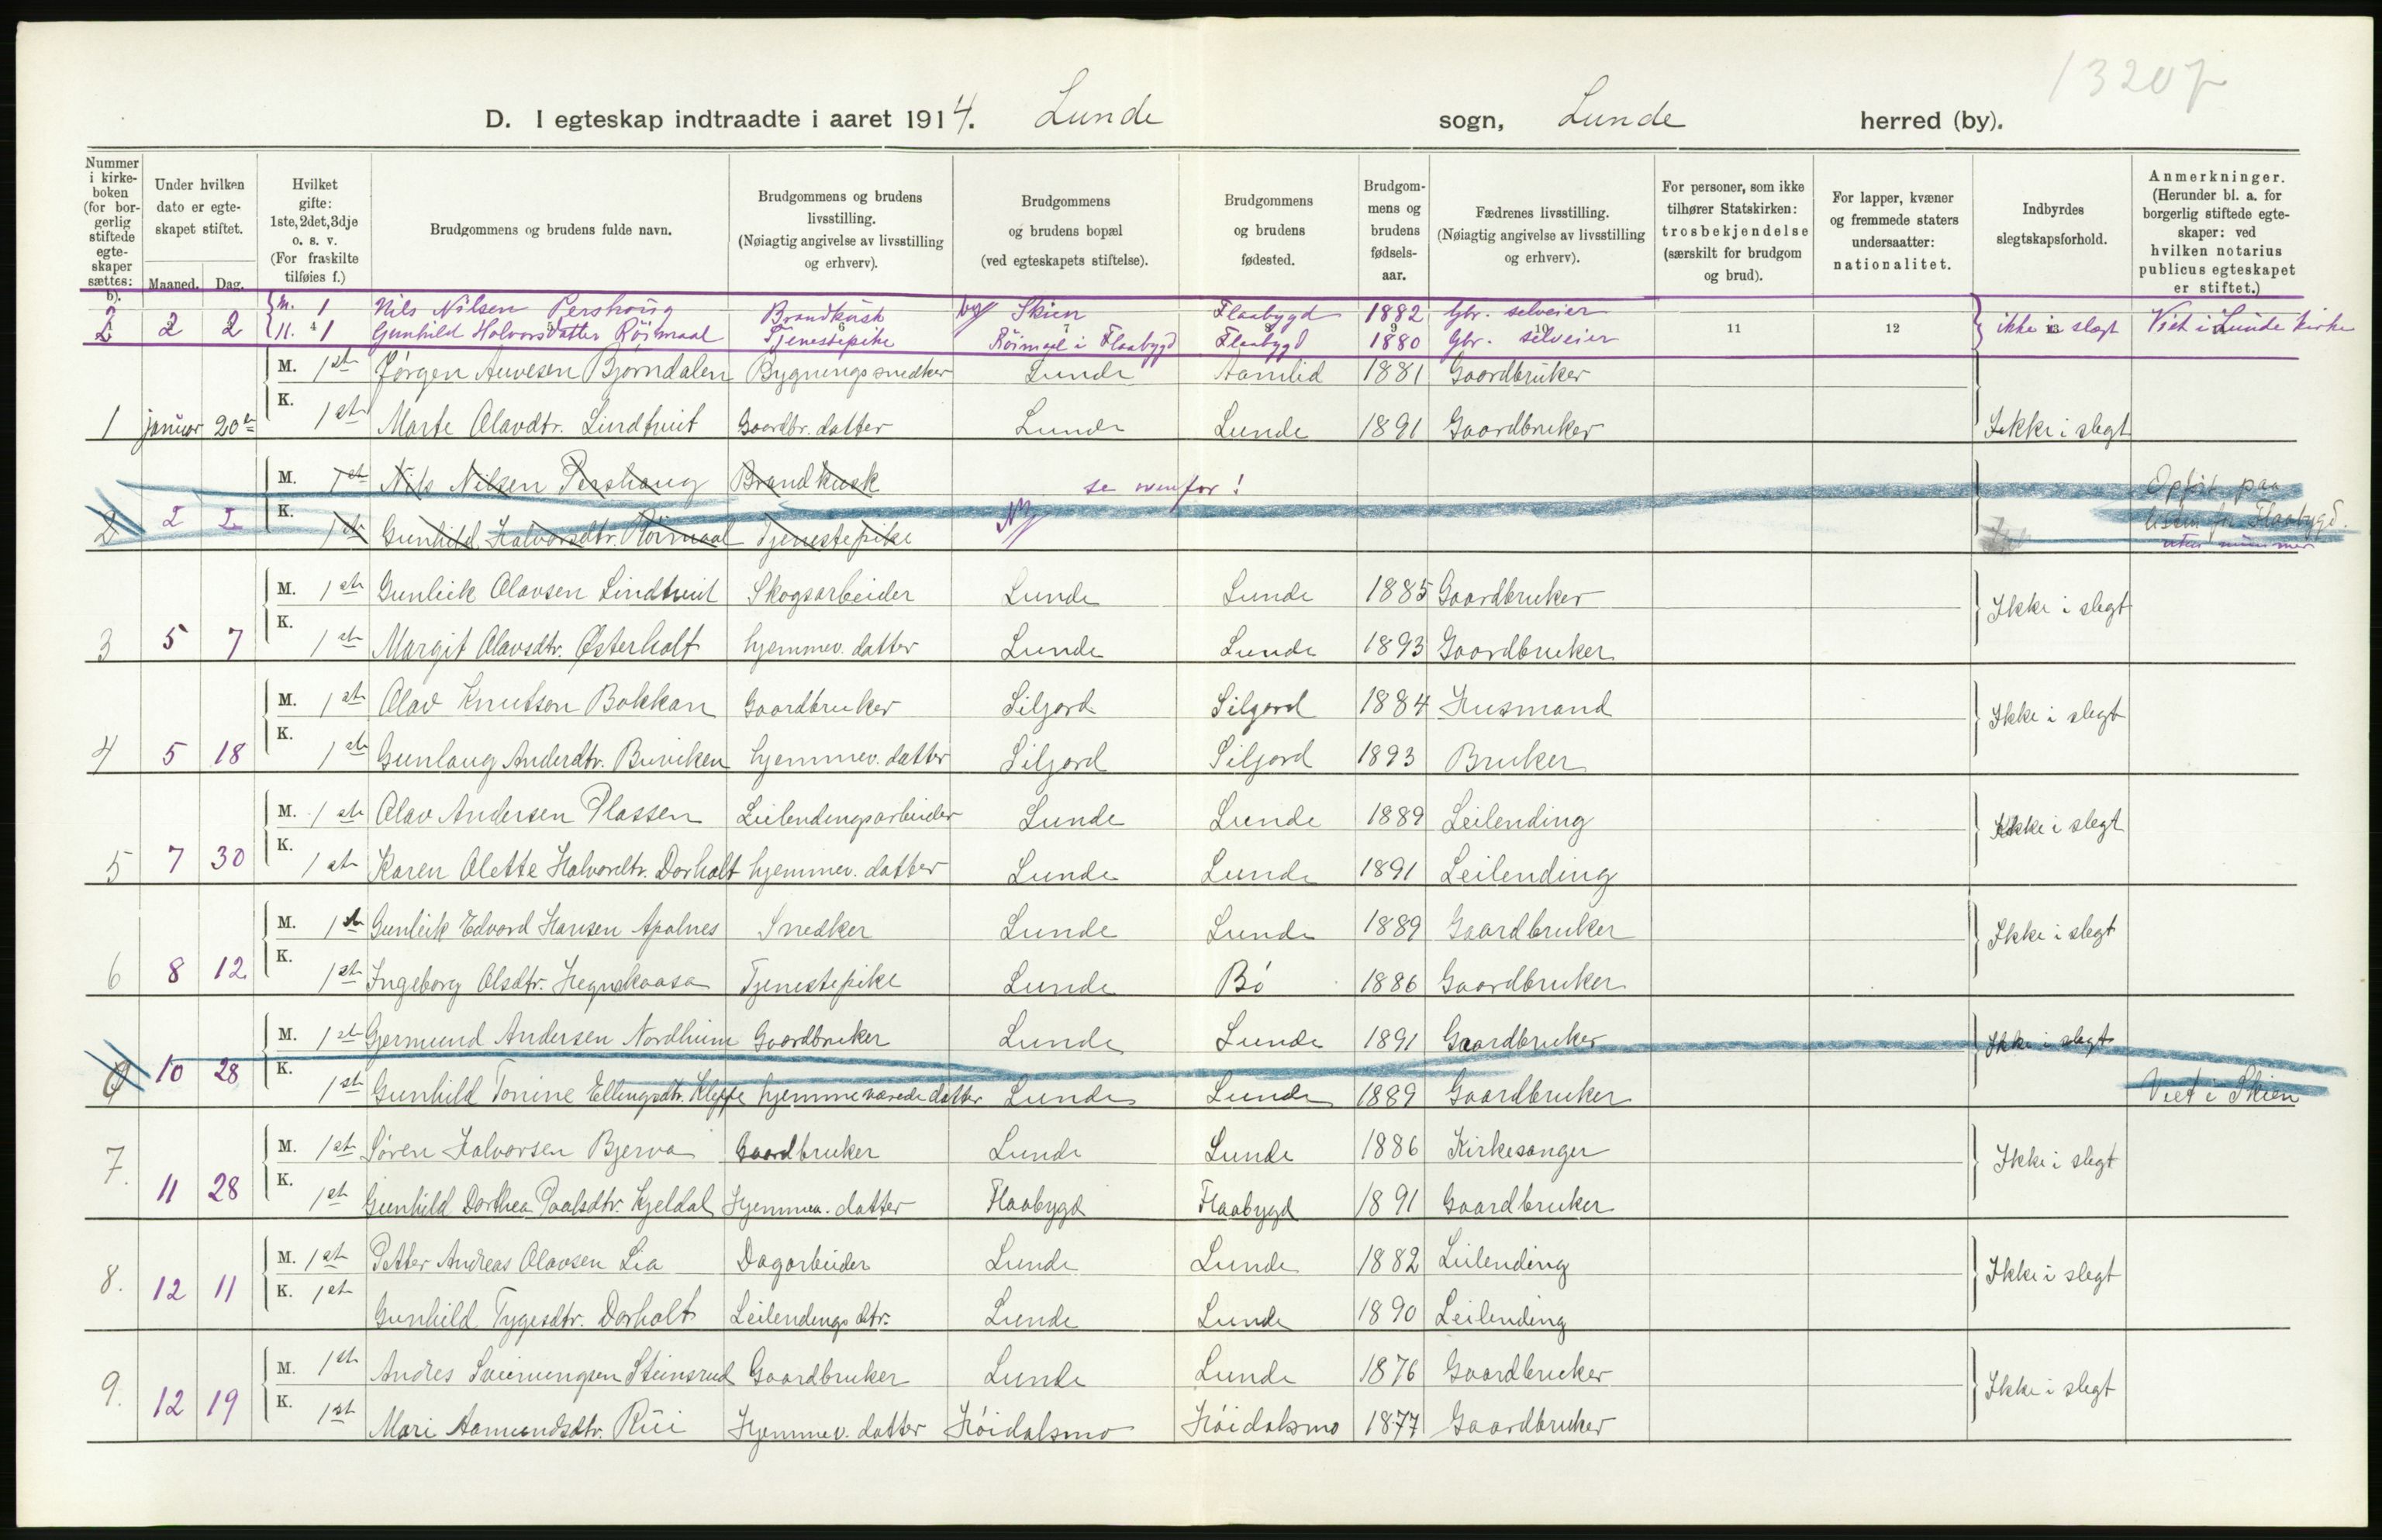 13207
D. I egteskap indtraadte i aaret 1914. Lunde sogn, Lunde herred (by).
Nummer i kirkeboken (for borgerlig stiftede egteskaper sættes: b).
Under hvilken dato er egteskapet stiftet.
Maaned. Dag.
Hvilket gifte: 1ste, 2det, 3dje o. s. v. (For fraskilte tilføies f.)
Brudgommens og brudens fulde navn.
Brudgommens og brudens livsstilling. (Nøiagtig angivelse av livsstilling og erhverv).
Brudgommens og brudens bopæl (ved egteskapets stiftelse).
Brudgommens og brudens fødested.
Brudgommens og brudens fødselsaar.
Fædrenes livsstilling. (Nøiagtig angivelse av livsstilling og erhverv).
For personer, som ikke tilhører Statskirken: trosbekjendelse (særskilt for brudgom og brud).
For lapper, kvæner og fremmede staters undersaatter: nationalitet.
Indbyrdes slegtskapsforhold.
Anmerkninger. (Herunder bl. a. for borgerlig stiftede egteskaper: ved hvilken notarius publicus egteskapet er stiftet.)
M. 1 Nils Nilsen Pershoug Brandkusk Skien Flaabygd 1882 Gbr. selveier
2 2 2 K. 1 Gunhild Halvorsdatter Röimaal Tjenestepike Röimaal i Flaabygd Flaabygd 1880 Gbr. selveier 11 12 ikke i slegt Viet i Lunde kirke
M. 1ste Jørgen Auvesen Bjørndalen Bygningssnedker Lunde Aamlid 1881 Gaardbruker
1 januar 20de K. 1ste Marte Olavdtr. Lindtveit Gaardbr. datter Lunde Lunde 1891 Gaardbruker Ikke i slegt
M. 1ste Nils Nilsen Pershaug Brandkusk se ovenfor! Opført paa
2 2 2 K. 1ste Gunhild Halvorsdtr. Röimaal Tjenestepike listen for Flaabygd.
uten nummer
M. 1ste Gunleik Olavsen Lindtveit Skogsarbeider Lunde Lunde 1885 Gaardbruker Ikke i slegt
3 5 7 K. 1ste Margit Olavsdtr. Østerholt hjemmev. datter Lunde Lunde 1893 Gaardbruker
M. 1ste Olav Knutsen Bakkan Gaardbruker Siljord Siljord 1884 Husmand Ikke i slegt
4 5 18 K. 1ste Gunlaug Andersdtr. Buviken hjemmev. datter Siljord Siljord 1893 Bruker
M. 1ste Olav Andersen Plassen Leilendingsarbeider Lunde Lunde 1889 Leilending Ikke i slegt
5 7 30 K. 1ste Karen Olette Halvordtr. Dorholt hjemmev. datter Lunde Lunde 1891 Leilending
M. 1ste Gunleik Edvard Hansen Apalnes Snedker Lunde Lunde 1889 Gaardbruker Ikke i slegt
6 8 12 K. 1ste Ingeborg Olsdtr. Hegnakaasa Tjenestepike Lunde Bö 1886 Gaardbruker
M. 1ste Gjermund Andersen Nordheim Gaardbruker Lunde Lunde 1891 Gaardbruker Ikke i slegt
10 28 K. 1ste Gunhild Tonine Ellingsdtr. Kleppe hjemmeværende datter Lunde Lunde 1889 Gaardbruker Viet i Skien
M. 1ste Søren Halvorsen Bjerva Gaardbruker Lunde Lunde 1886 Kirkesanger Ikke i slegt
7. 11 28 K. 1ste Gunhild Dorthea Paalsdtr. Kjeldal Hjemmev. datter Flaabygd Flaabygd 1891 Gaardbruker
M. 1ste Petter Andreas Olavsen Lia Dagarbeider Lunde Lunde 1882 Leilending Ikke i slegt
8. 12 11 K. 1ste Gunhild Tygesdtr. Dorholt Leilendings dtr. Lunde Lunde 1890 Leilending
M. 1ste Andres Sveinungsen Steinsrud Gaardbruker Lunde Lunde 1876 Gaardbruker Ikke i slegt
9. 12 19 K. 1ste Mari Aamundsdtr. Rui Hjemmev. datter Höidalsmo Höidalsmo 1877 Gaardbruker